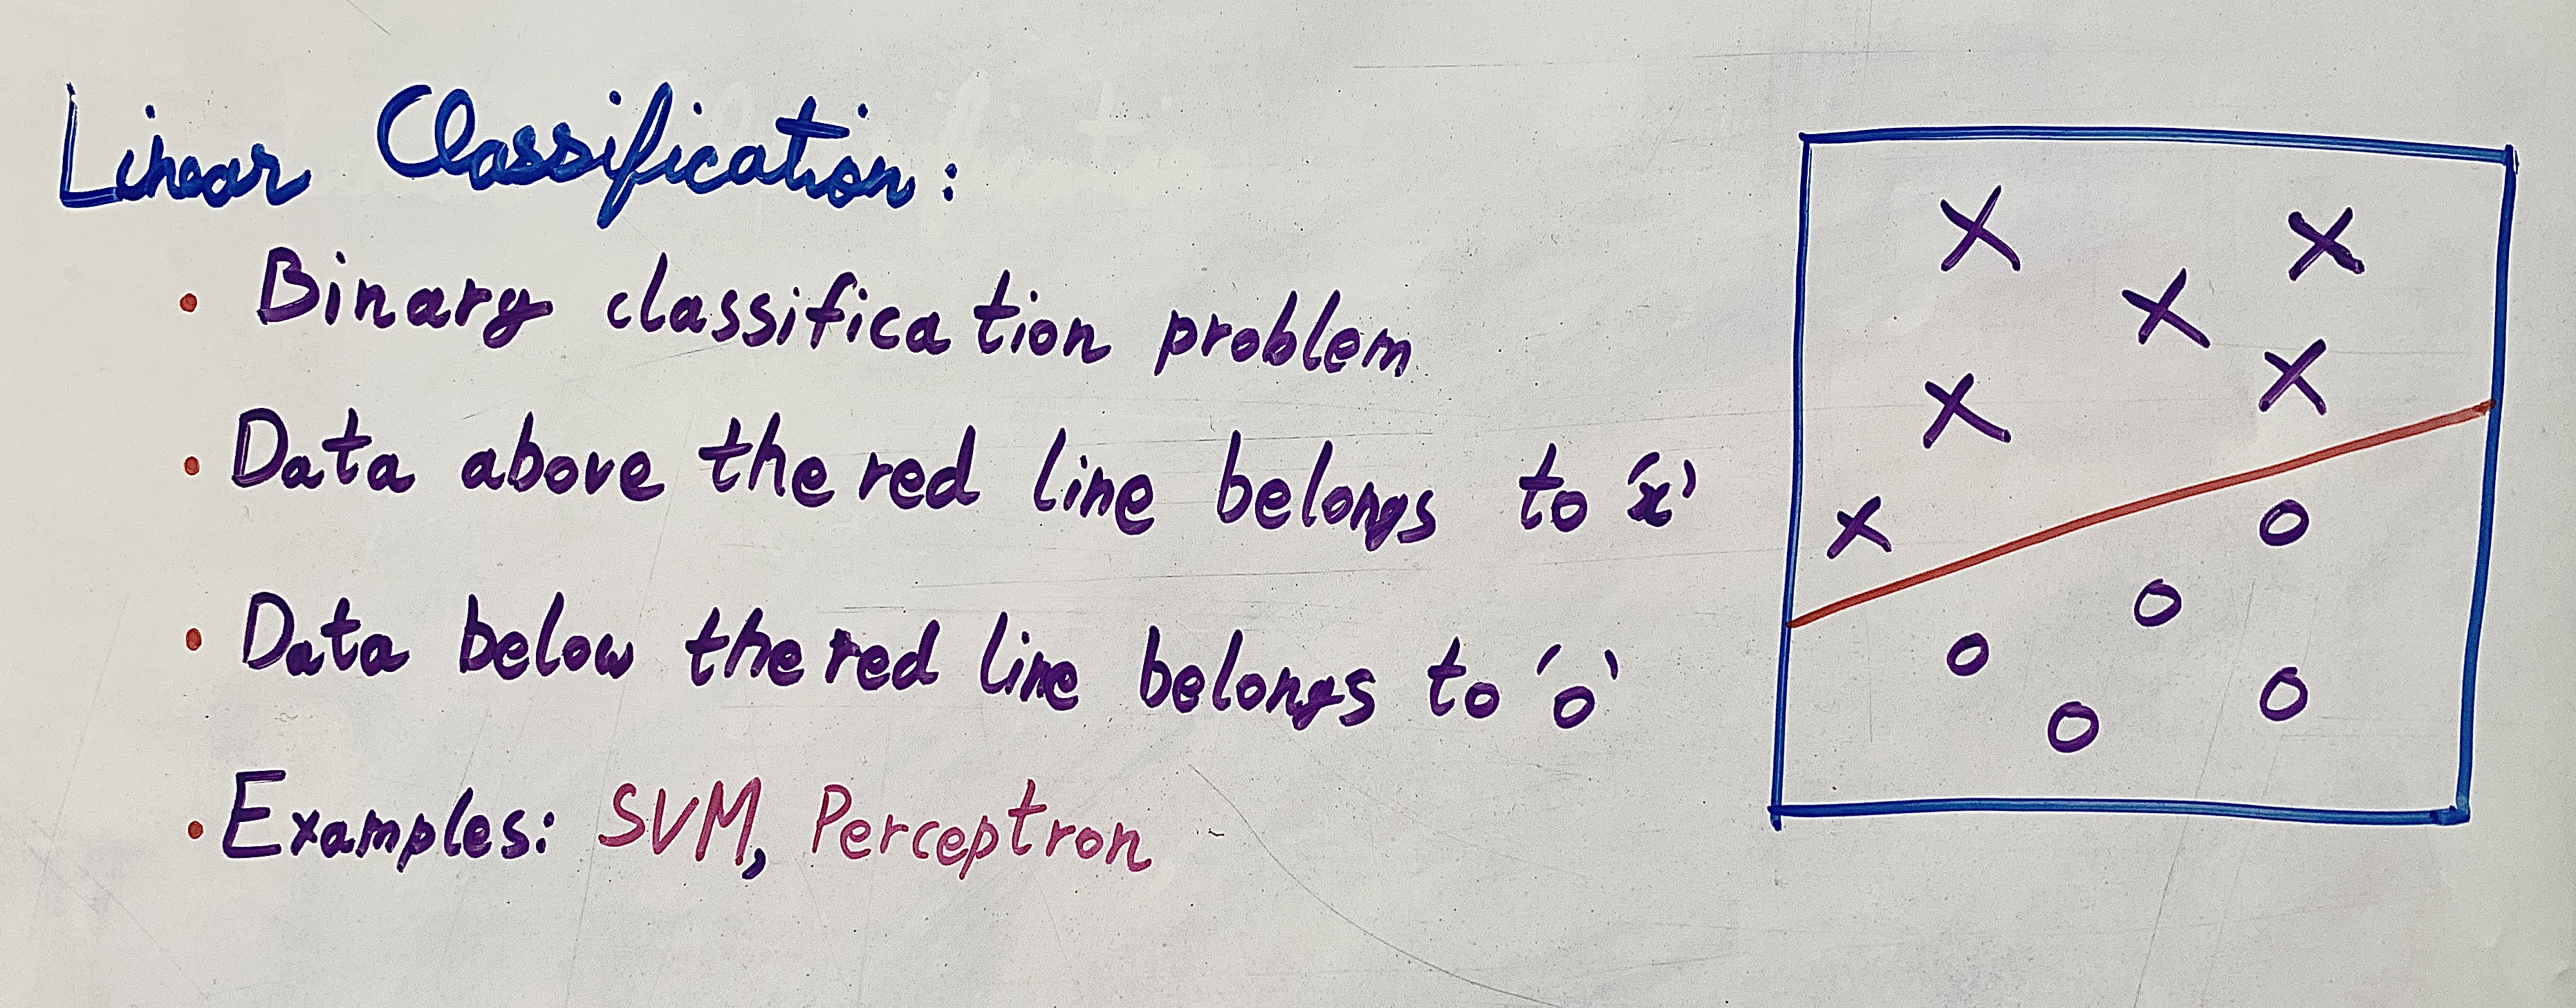 Linear Classification:
• Binary classification problem
• Data above the red line belongs to 'x'
• Data below the red line belongs to 'o'
• Examples: SVM, Perceptron